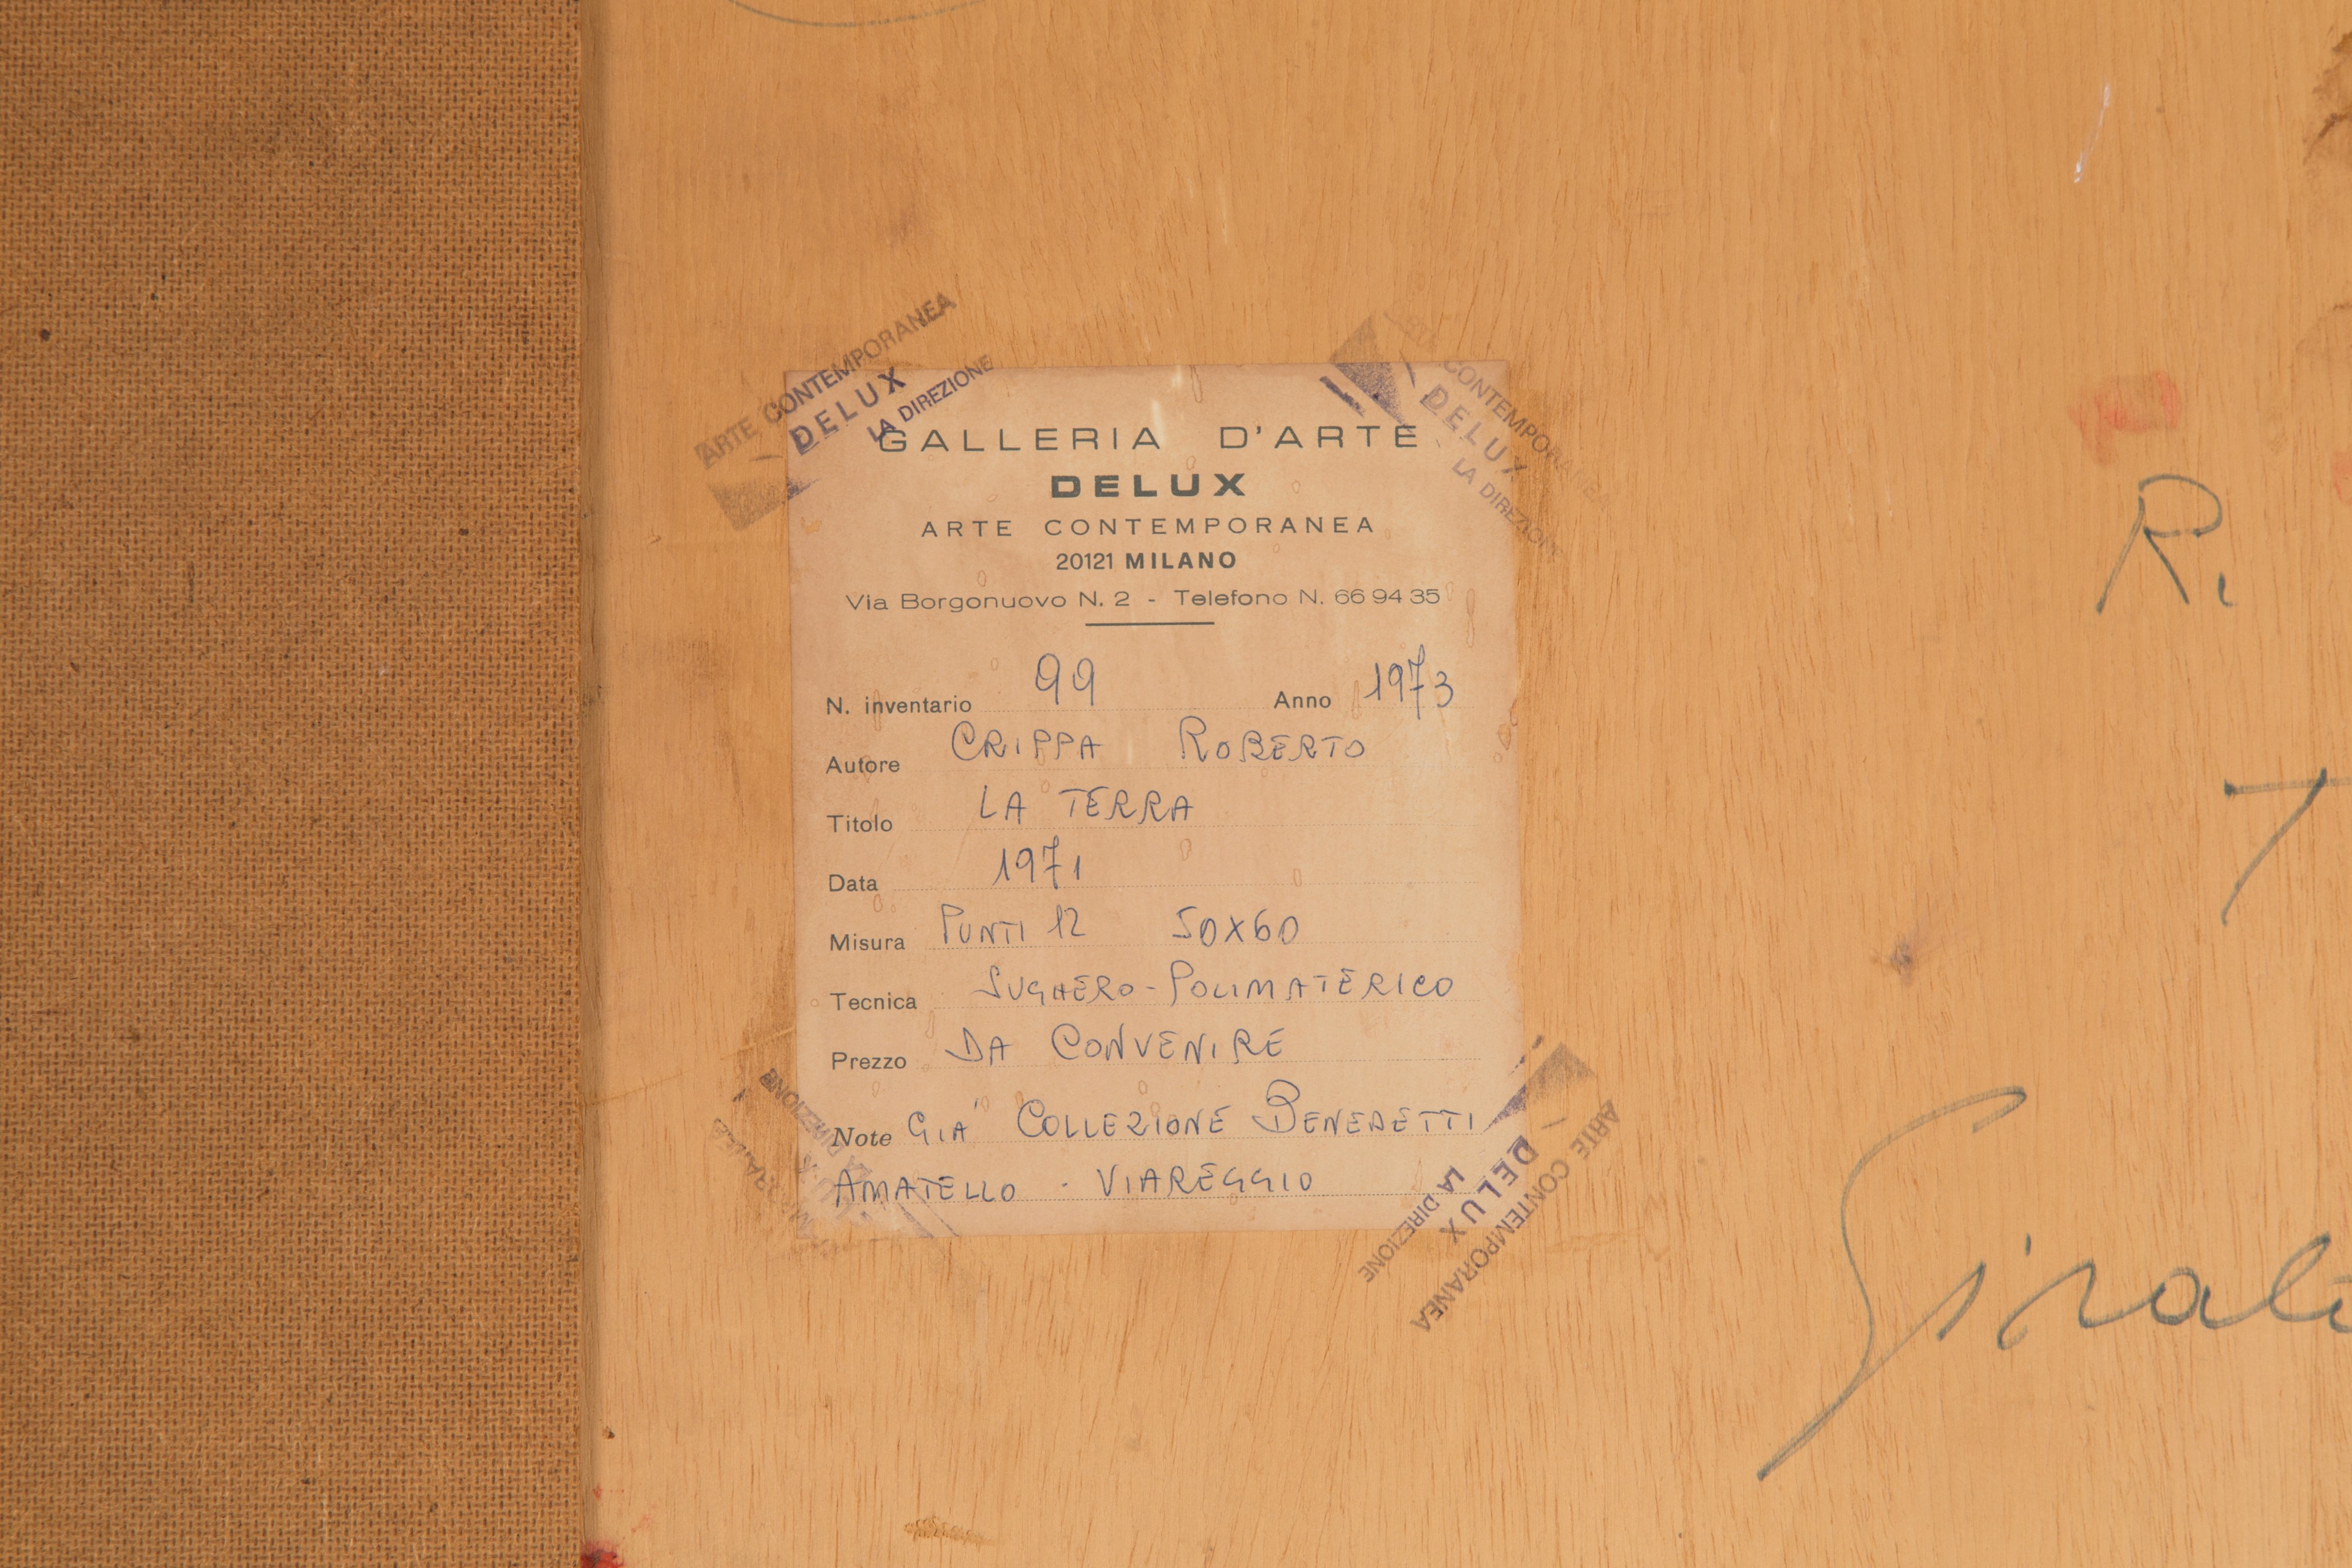 GALLERIA D'ARTE
DELUX
ARTE CONTEMPORANEA
20121 MILANO
Via Borgonuovo N. 2 - Telefono N. 66 94 35
N. inventario 99 Anno 1973
Autore CRIPPA ROBERTO
Titolo LA TERRA
Data 1971
Misura PUNTI 12 50X60
Tecnica SUGHERO-POLIMATERICO
Prezzo DA CONVENIRE
Note GIA' COLLEZIONE BENEDETTI
AMATELLO - VIAREGGIO
ARTE CONTEMPORANEA
DELUX
LA DIREZIONE
ARTE CONTEMPORANEA
DELUX
LA DIREZIONE
ARTE CONTEMPORANEA
DELUX
LA DIREZIONE
LA DIREZIONE
R.
T